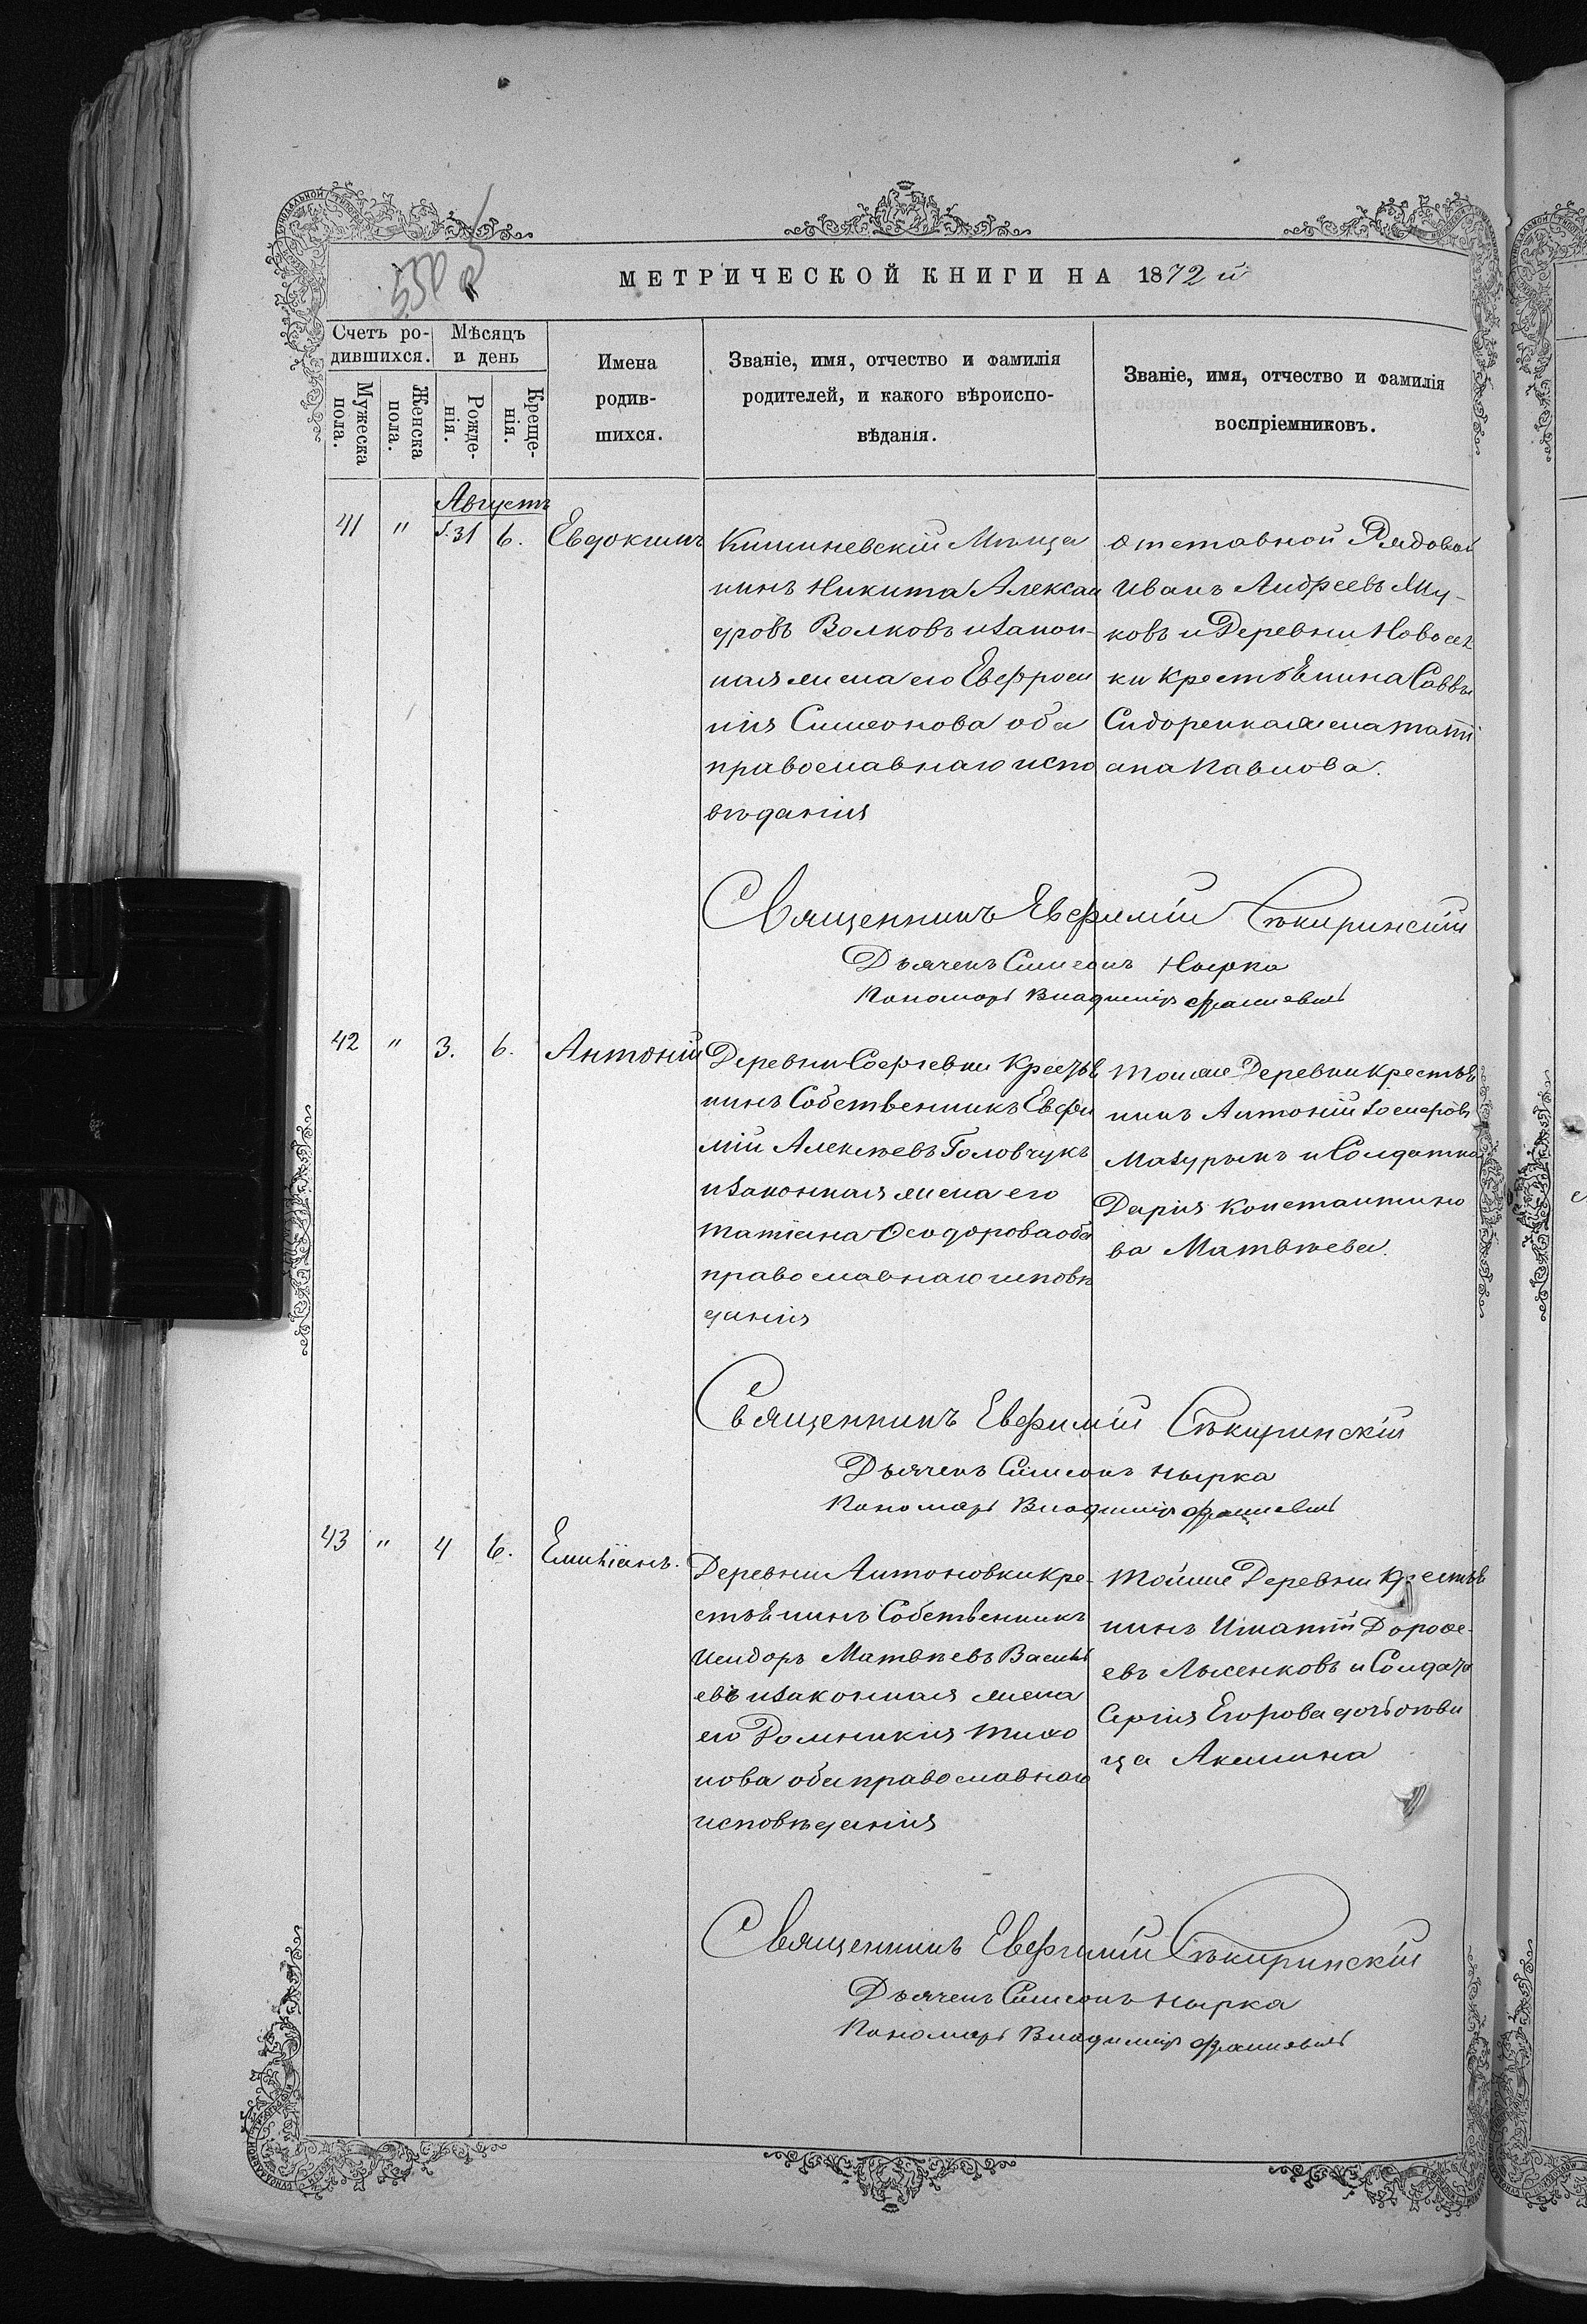 550
МЕТРИЧЕСКОЙ КНИГИ НА 1872 й
Счетъ ро-
дившихся.
Мѣсяцъ
и день
Мужеска
пола.
Женска
пола.
Рожде-
нія.
Креще-
нія.
Имена
родив-
шихся.
Званіе, имя, отчество и фамилія
родителей, и какого вѣроиспо-
вѣданія.
Званіе, имя, отчество и фамилія
воспріемниковъ.
Августъ
41 " 31 6. Евдокимъ
Кишиневскій Мѣща
нинъ Никита Алексан
дровъ Волковъ и закон-
ная жена его Евфроси
нія Симеонова оба
православнаго испо
вѣданія
Отставной Рядовой
Иванъ Андреевъ
ковъ и Деревни Новосел
ки крестьянина Саввы
Сидоренка жена Татi
ана Павлова.
Священникъ Евфимій Сѣкиринскій
Дьячекъ Симеонъ Нырка
Пономарь Владиміръ
42 " 3. 6. Антоній
Деревни Софіевки Крестья
нинъ Собственникъ Евфи
мій Алексѣевъ Головчукъ
и законная жена его
Татіана Ѳеодорова оба
православнаго исповѣ
данія
Тойже Деревни крестья
нинъ Антоній
Мазурыкъ и Солдатка
Дарія Константино
ва Матвѣева.
Священникъ Евфимій Сѣкиринскій
Дьячекъ Симеонъ Нырка
Пономарь Владиміръ
43 " 4 6. Емиліанъ.
Деревни Антоновки Кре-
стьянинъ Собственникъ
Исидоръ Матвѣевъ Василь
евъ и законная жена
его Домникія Тихо
нова оба православнаго
исповѣданія
Тойже Деревни Крестья
нинъ Игнатій Дороѳе-
евъ Лысенковъ и Солдата
Сергія Егорова дочь дѣви
ца Акилина
Священникъ Евфимій Сѣкиринскій
Дьячекъ Симеонъ Нырка
Пономарь Владиміръ